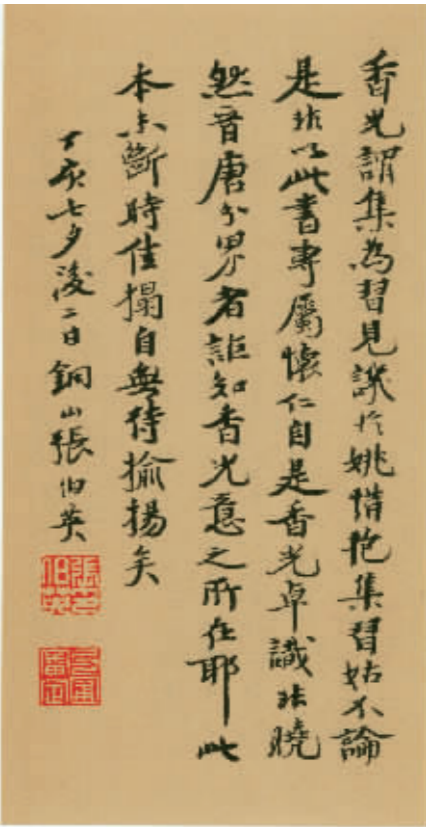 香光謂集為習見譏於姚惜抱集習姑不論
是非以此書專屬懷仁自是香光卓識非曉
然晋唐分界者詎知香光意之所在耶此
本未斷時佳搨自無待揄揚矣
丁亥七夕後二日銅山張伯英